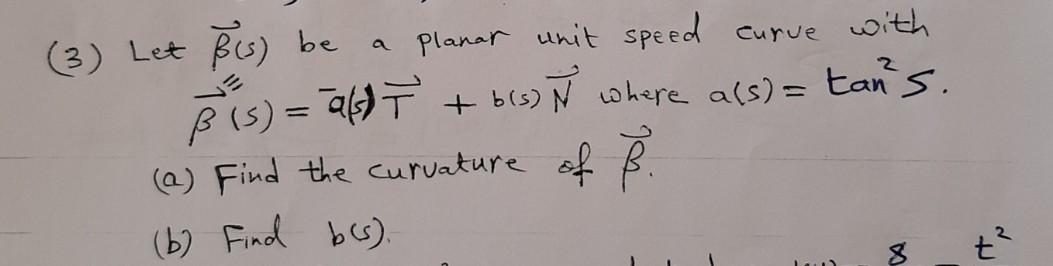 (3) Let β⃗(s) be a planar unit speed curve with
β⃗'''(s) = -a(s) T⃗ + b(s) N⃗ where a(s) = tan² s.
(a) Find the curvature of β⃗.
(b) Find b(s).
8 t²